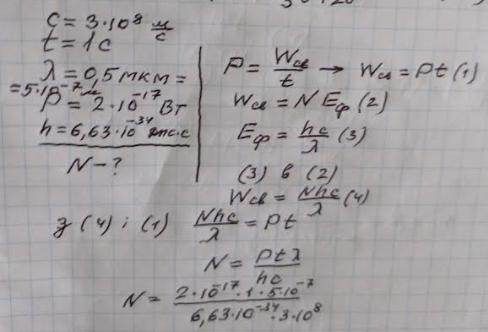 c = 3·10⁸ м/с
t = 1 c
λ = 0,5 мкм =
= 5·10⁻⁷ м
P = 2·10⁻¹⁷ Вт
h = 6,63·10⁻³⁴ Дж·с
N - ?
P = Wсв/t → Wсв = Pt (1)
Wсв = N Eф (2)
Eф = hc/λ (3)
(3) в (2)
Wсв = Nhc/λ (4)
з (4) і (1) Nhc/λ = Pt
N = Ptλ/hc
N = 2·10⁻¹⁷·1·5·10⁻⁷/6,63·10⁻³⁴·3·10⁸